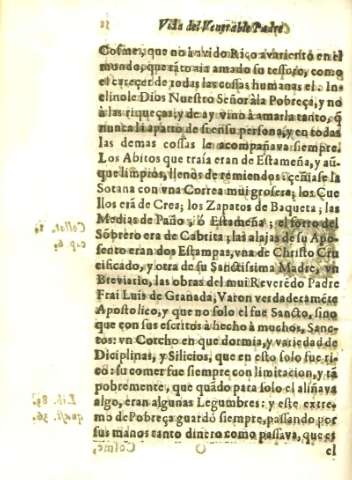 Vida del Venerable Padre
Cosme, que no à avido Rico avariento en el
mundo, que tãto aia amado su tessoro, como
el carecer de todas las cossas humanas el. In
clinole Dios Nuestro Señor à la Pobreça, y no
à las riqueças; y de ay vino à amarla tanto, q̃
nunca li aparto de si en su persona, y en todas
las demas cossas le acompañava siempre.
Los Abitos que traía eran de Estameña, y aũ-
que limpiòs, llenos de remiendos: ceñiase la
Sotana con vna Correa mui grosera; los Cue
llos erã de Crea; los Zapatos de Baqueta; las
Medias de Paño, ò Estameña; el forro del
Sõbrero era de Cabrita; las alajas de su Apo-
sento eran dos Estampas, vna de Christo Cru
cificado, y otra de su Sanctissima Madre, vn
Breviario, las obras del mui Reverẽdo Padre
Frai Luis de Granada, Varon verdaderamẽte
Apostolico, y que no solo el fue Sancto, sino
que con sus escritos à hecho à muchos, Sanc-
tos: vn Corcho en que dormia, y variedad de
Diciplinas, y Silicios, que en esto solo fue ri-
co: su comer fue siempre con limitacion, y tã
pobremente, que quãdo para solo el aliñava
algo, eran algunas Legumbres: y este extre-
mo de Pobreça guardò siempre, passando por
sus manos tanto dinero como passava, que es
el